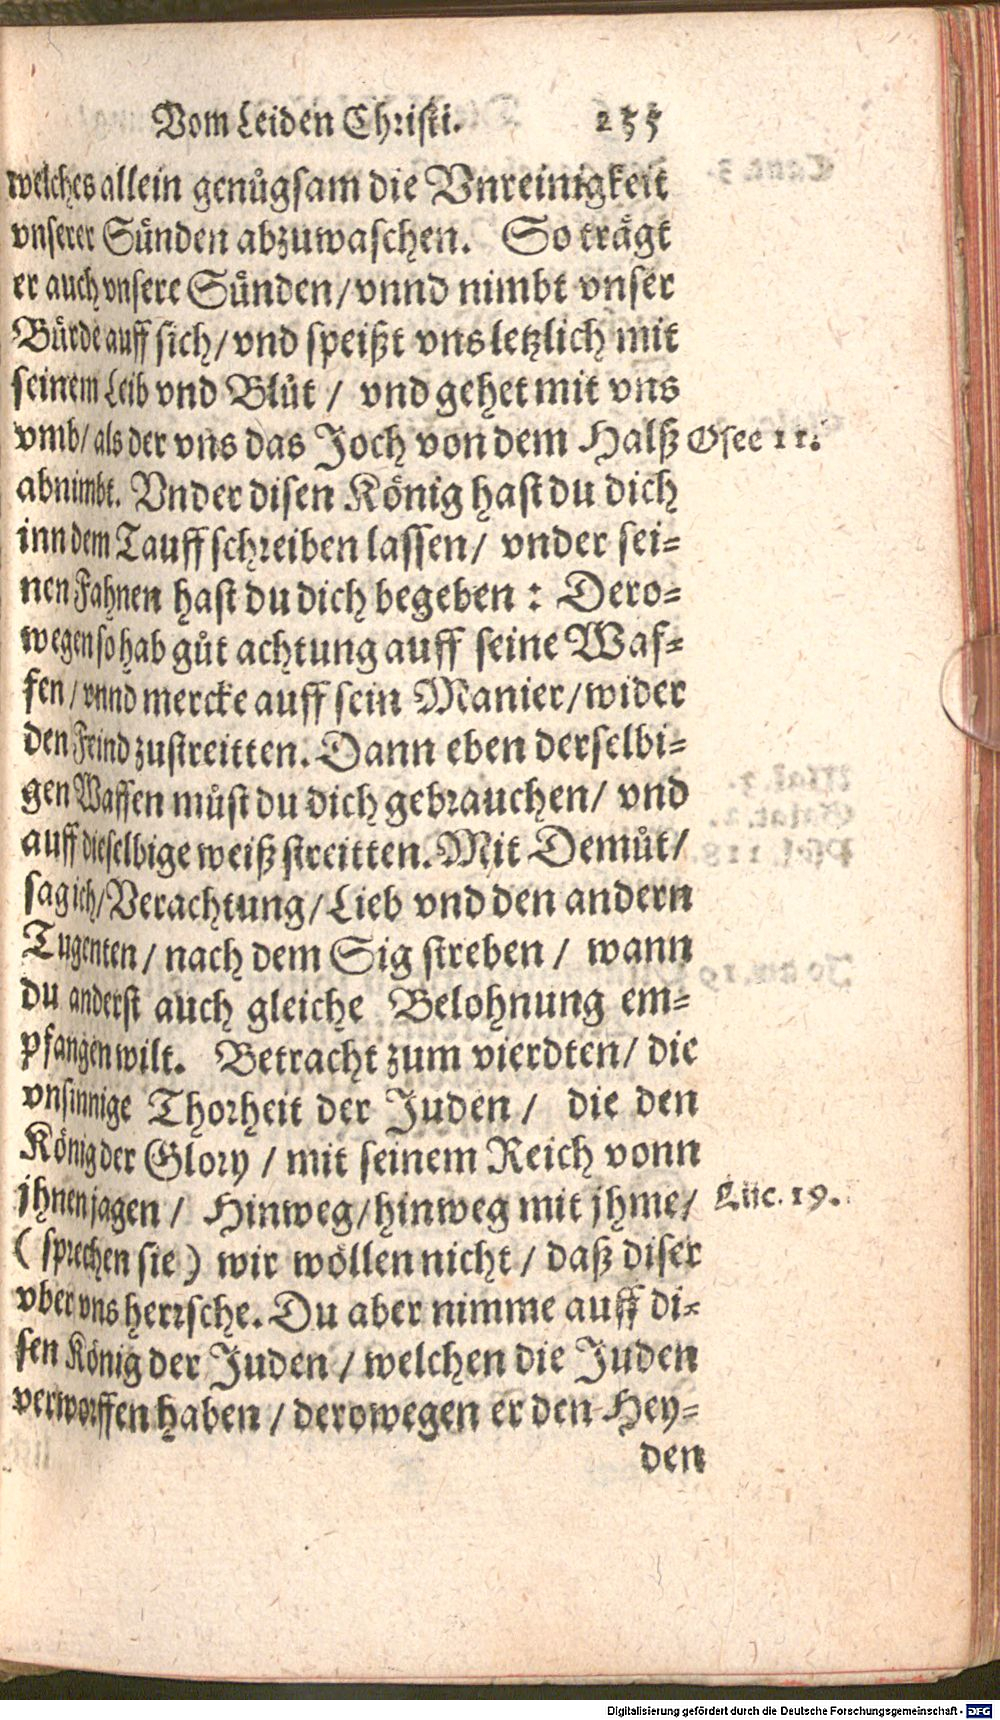 Vom Leiden Christi. 255
welches allein genůgsam die Vnreinigkeit
vnserer Sünden abzuwaschen. So trägt
er auch vnsere Sünden / vnnd nimbt vnser
Bürde auff sich / vnd speißt vns letzlich mit
seinem Leib vnd Blůt / vnd gehet mit vns
vmb / als der vns das Joch von dem Halß Osee 11.
abnimbt. Vnder disen König hast du dich
inn dem Tauff schreiben lassen / vnder sei-
nen Fahnen hast du dich begeben : Dero-
wegen so hab gůt achtung auff seine Waf-
fen / vnnd mercke auff sein Manier / wider
den Feind zustreitten. Dann eben derselbi-
gen Waffen můst du dich gebrauchen / vnd
auff dieselbige weiß streitten. Mit Demůt /
sag ich / Verachtung / Lieb vnd den andern
Tugenten / nach dem Sig streben / wann
du anderst auch gleiche Belohnung em-
pfangen wilt. Betracht zum vierdten / die
vnsinnige Thorheit der Juden / die den
König der Glory / mit seinem Reich vonn
jhnen jagen / Hinweg / hinweg mit jhme / Luc. 19.
( sprechen sie ) wir wöllen nicht / daß diser
vber vns herrsche. Du aber nimme auff di-
sen König der Juden / welchen die Juden
verworffen haben / derowegen er den Hey-
den
Digitalisierung gefördert durch die Deutsche Forschungsgemeinschaft - DFG